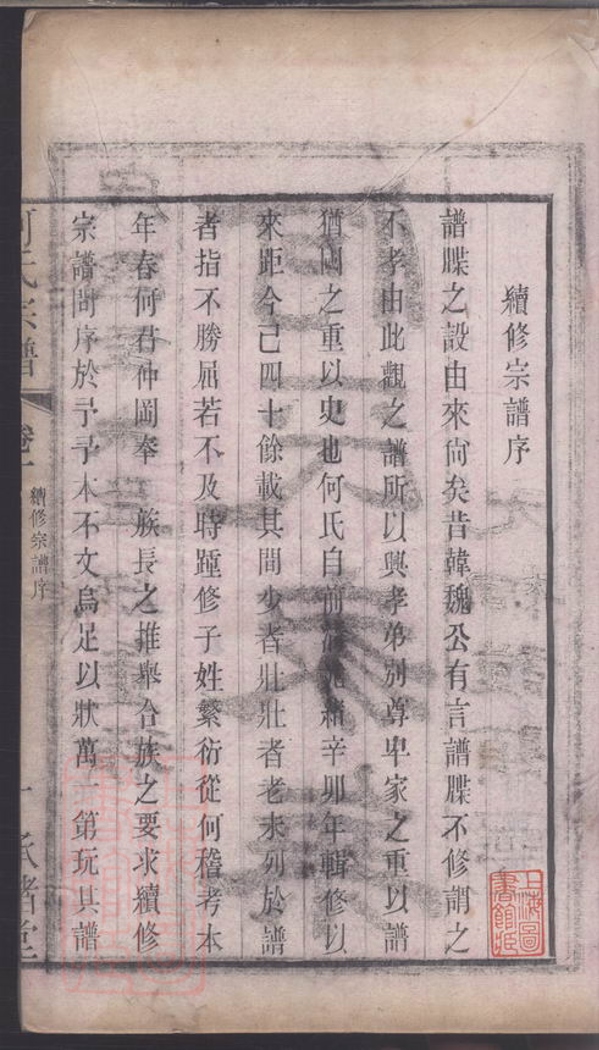 續修宗譜序
譜牒之設由來尚矣昔韓魏公有言譜牒不修謂之
不孝由此觀之譜所以興孝弟別尊卑家之重以譜
猶國之重以史也何氏自前清光緒辛卯年輯修以
來距今己四十餘載其間少者壯壯者老未列於譜
者指不勝屈若不及時踵修子姓繁衍從何稽考本
年春何君仲岡奉 族長之推舉合族之要求續修
宗譜問序於予予本不文烏足以狀萬一第玩其譜
何氏宗譜 卷一 續修宗譜序 一
上海圖書館藏